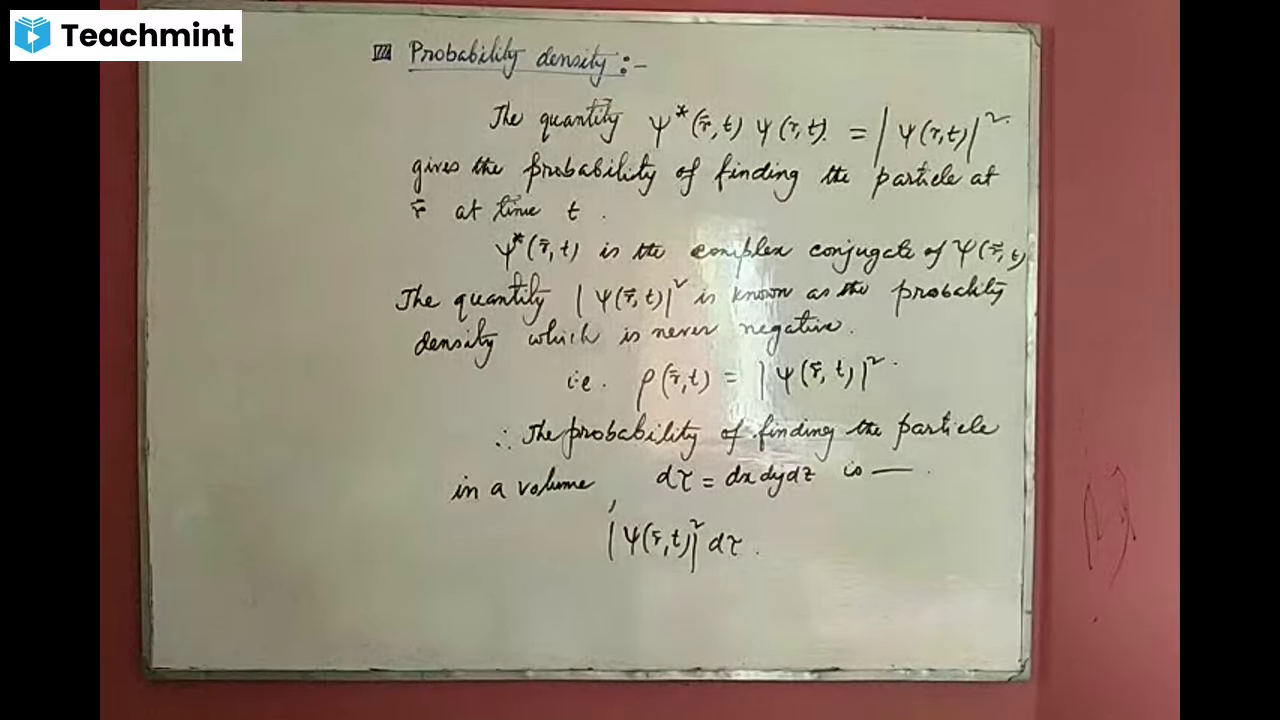 Teachmint
Probability density :-
The quantity ψ*(r̄,t) ψ(r,t). = |ψ(r,t)|².
gives the probability of finding the particle at
r̄ at time t.
ψ*(r̄,t) is the complex conjugate of ψ(r̄,t)
The quantity |ψ(r̄,t)|² is known as the probability
density which is never negative.
i.e. ρ(r̄,t) = |ψ(r̄,t)|².
∴ The probability of finding the particle
in a volume, dτ = dx dy dz is —.
|ψ(r̄,t)|² dτ.